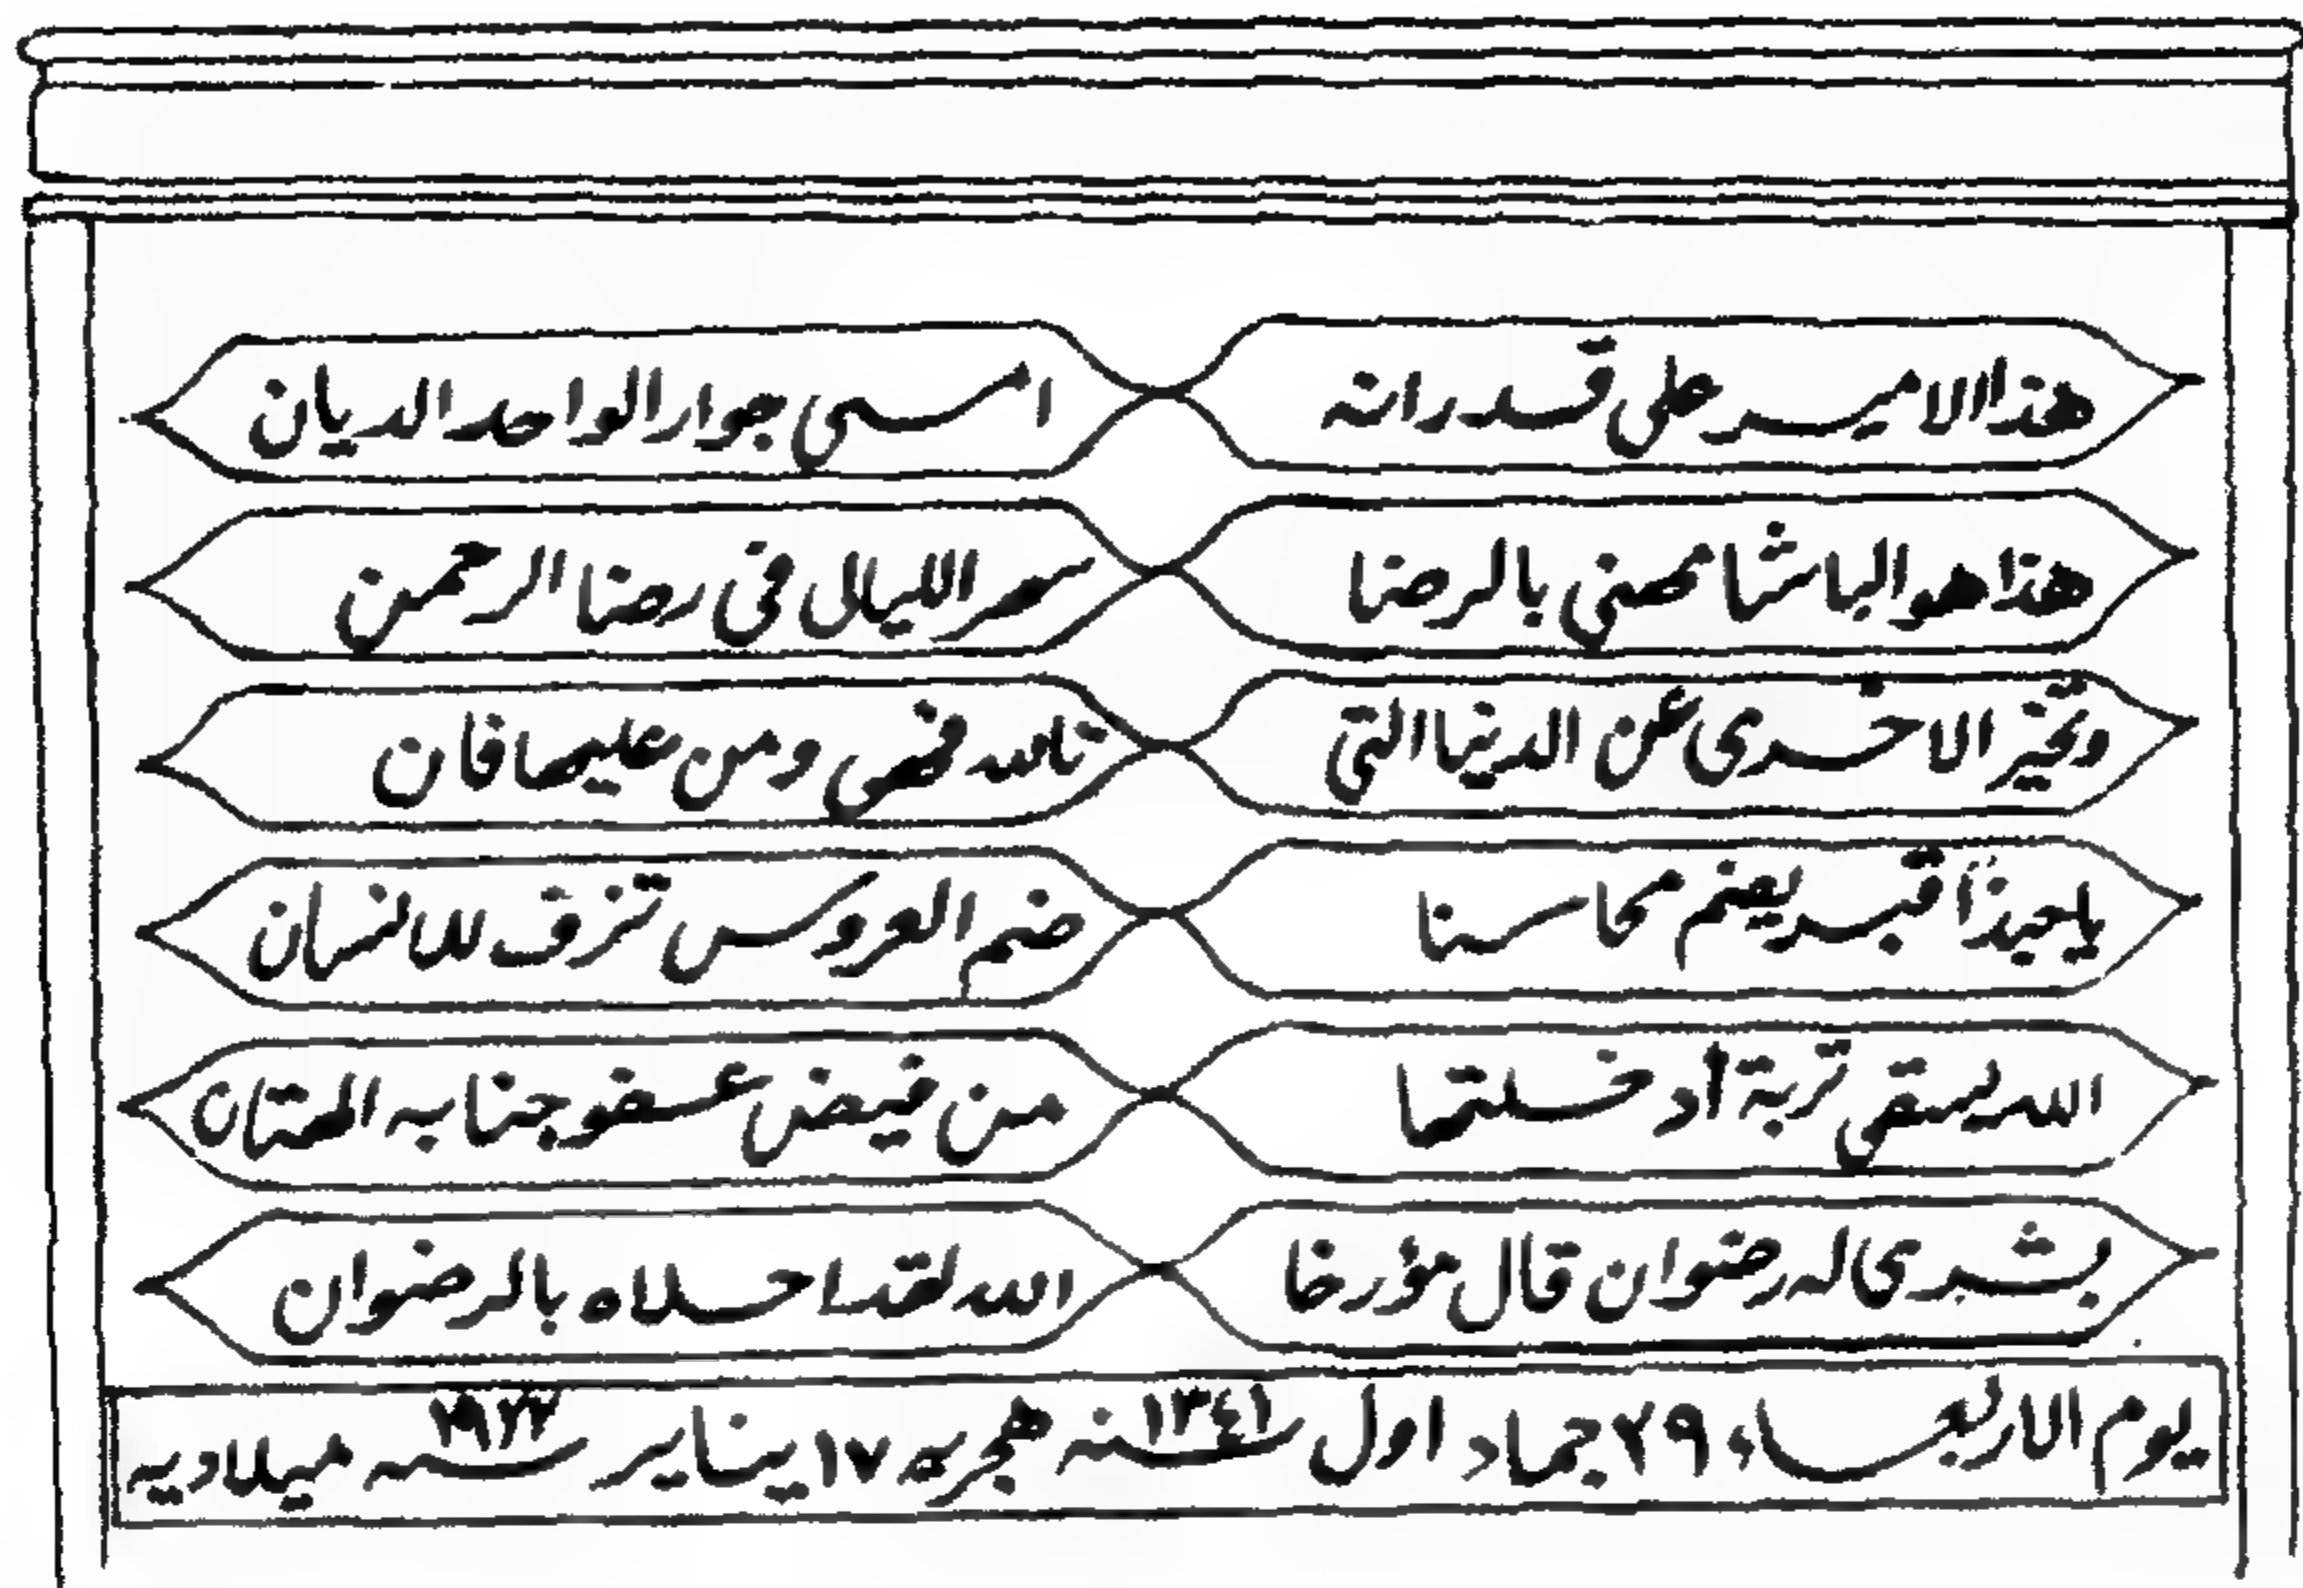 هذا الامير على قدرانه امسى جوار الواحد الديان
هذا هو الباشا مهنى بالرضا سهر الليالى فى رضا الرحمن
وتخير الاخرى عن الدنيا التى تالله فهى ومن عليها فان
ياحبذا قبر يضم محاسنا ضم العروس تزف للانسان
الله يسقى تربة أدخلتها من فيض عفو جنابه الهتان
بشرى له رضوان قال مؤرخا الله لقد احلاه بالرضوان
يوم الاربعاء ٢٩ جماد اول سنه ١٣٤١ هجريه ١٧ يناير سنه ميلاديه